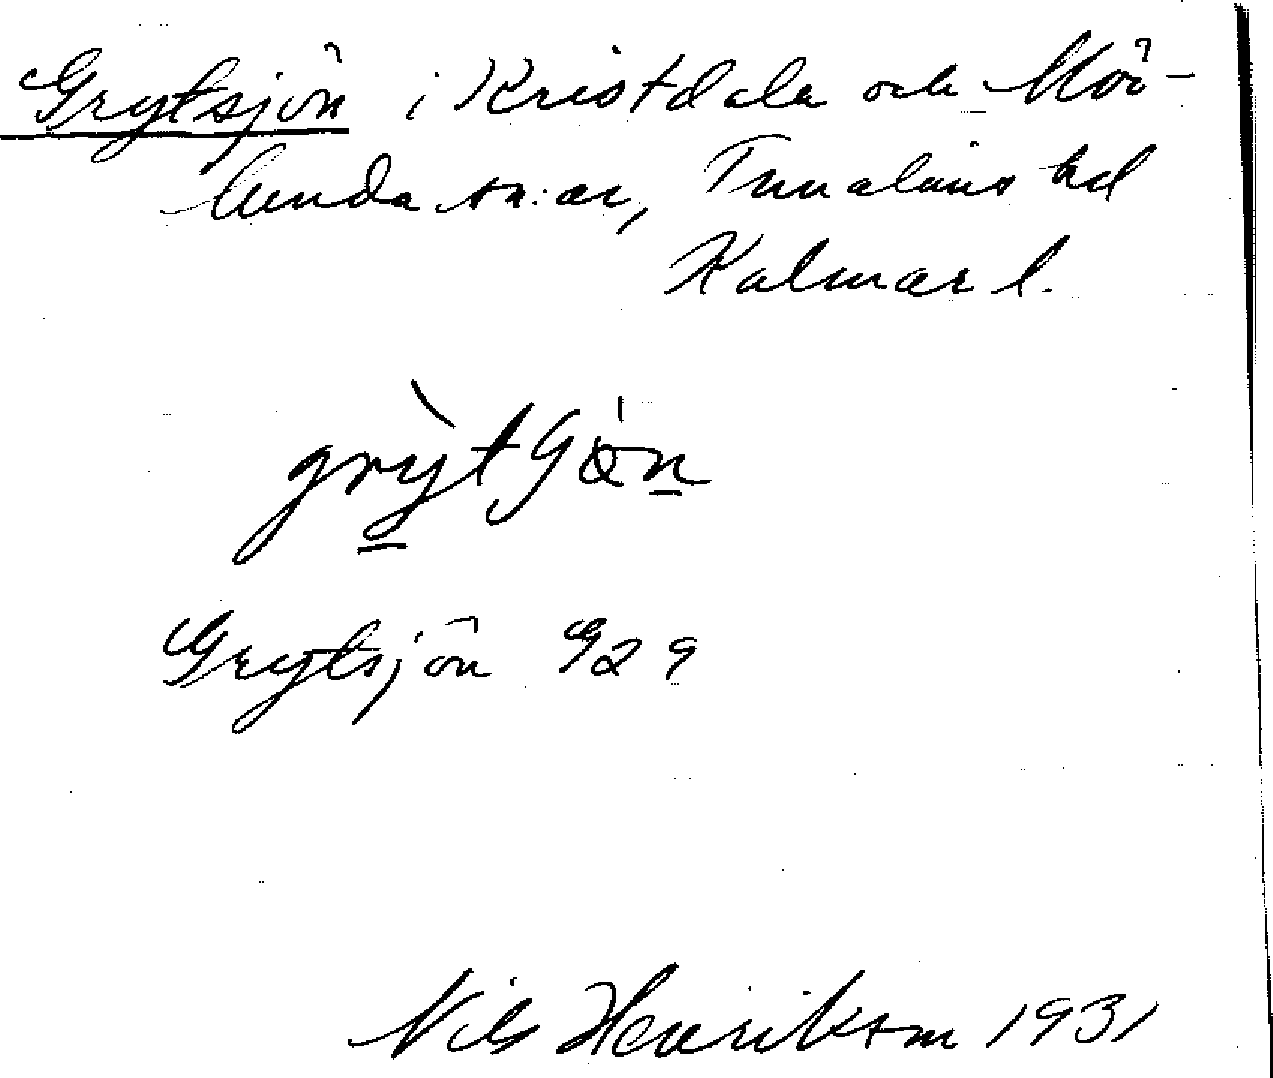 Grytsjön i Kristdala och Mör-
lunda sn:ar, Tunaläns hd
Kalmar l.
Grytsjön G29
Nils Henrikson 1931